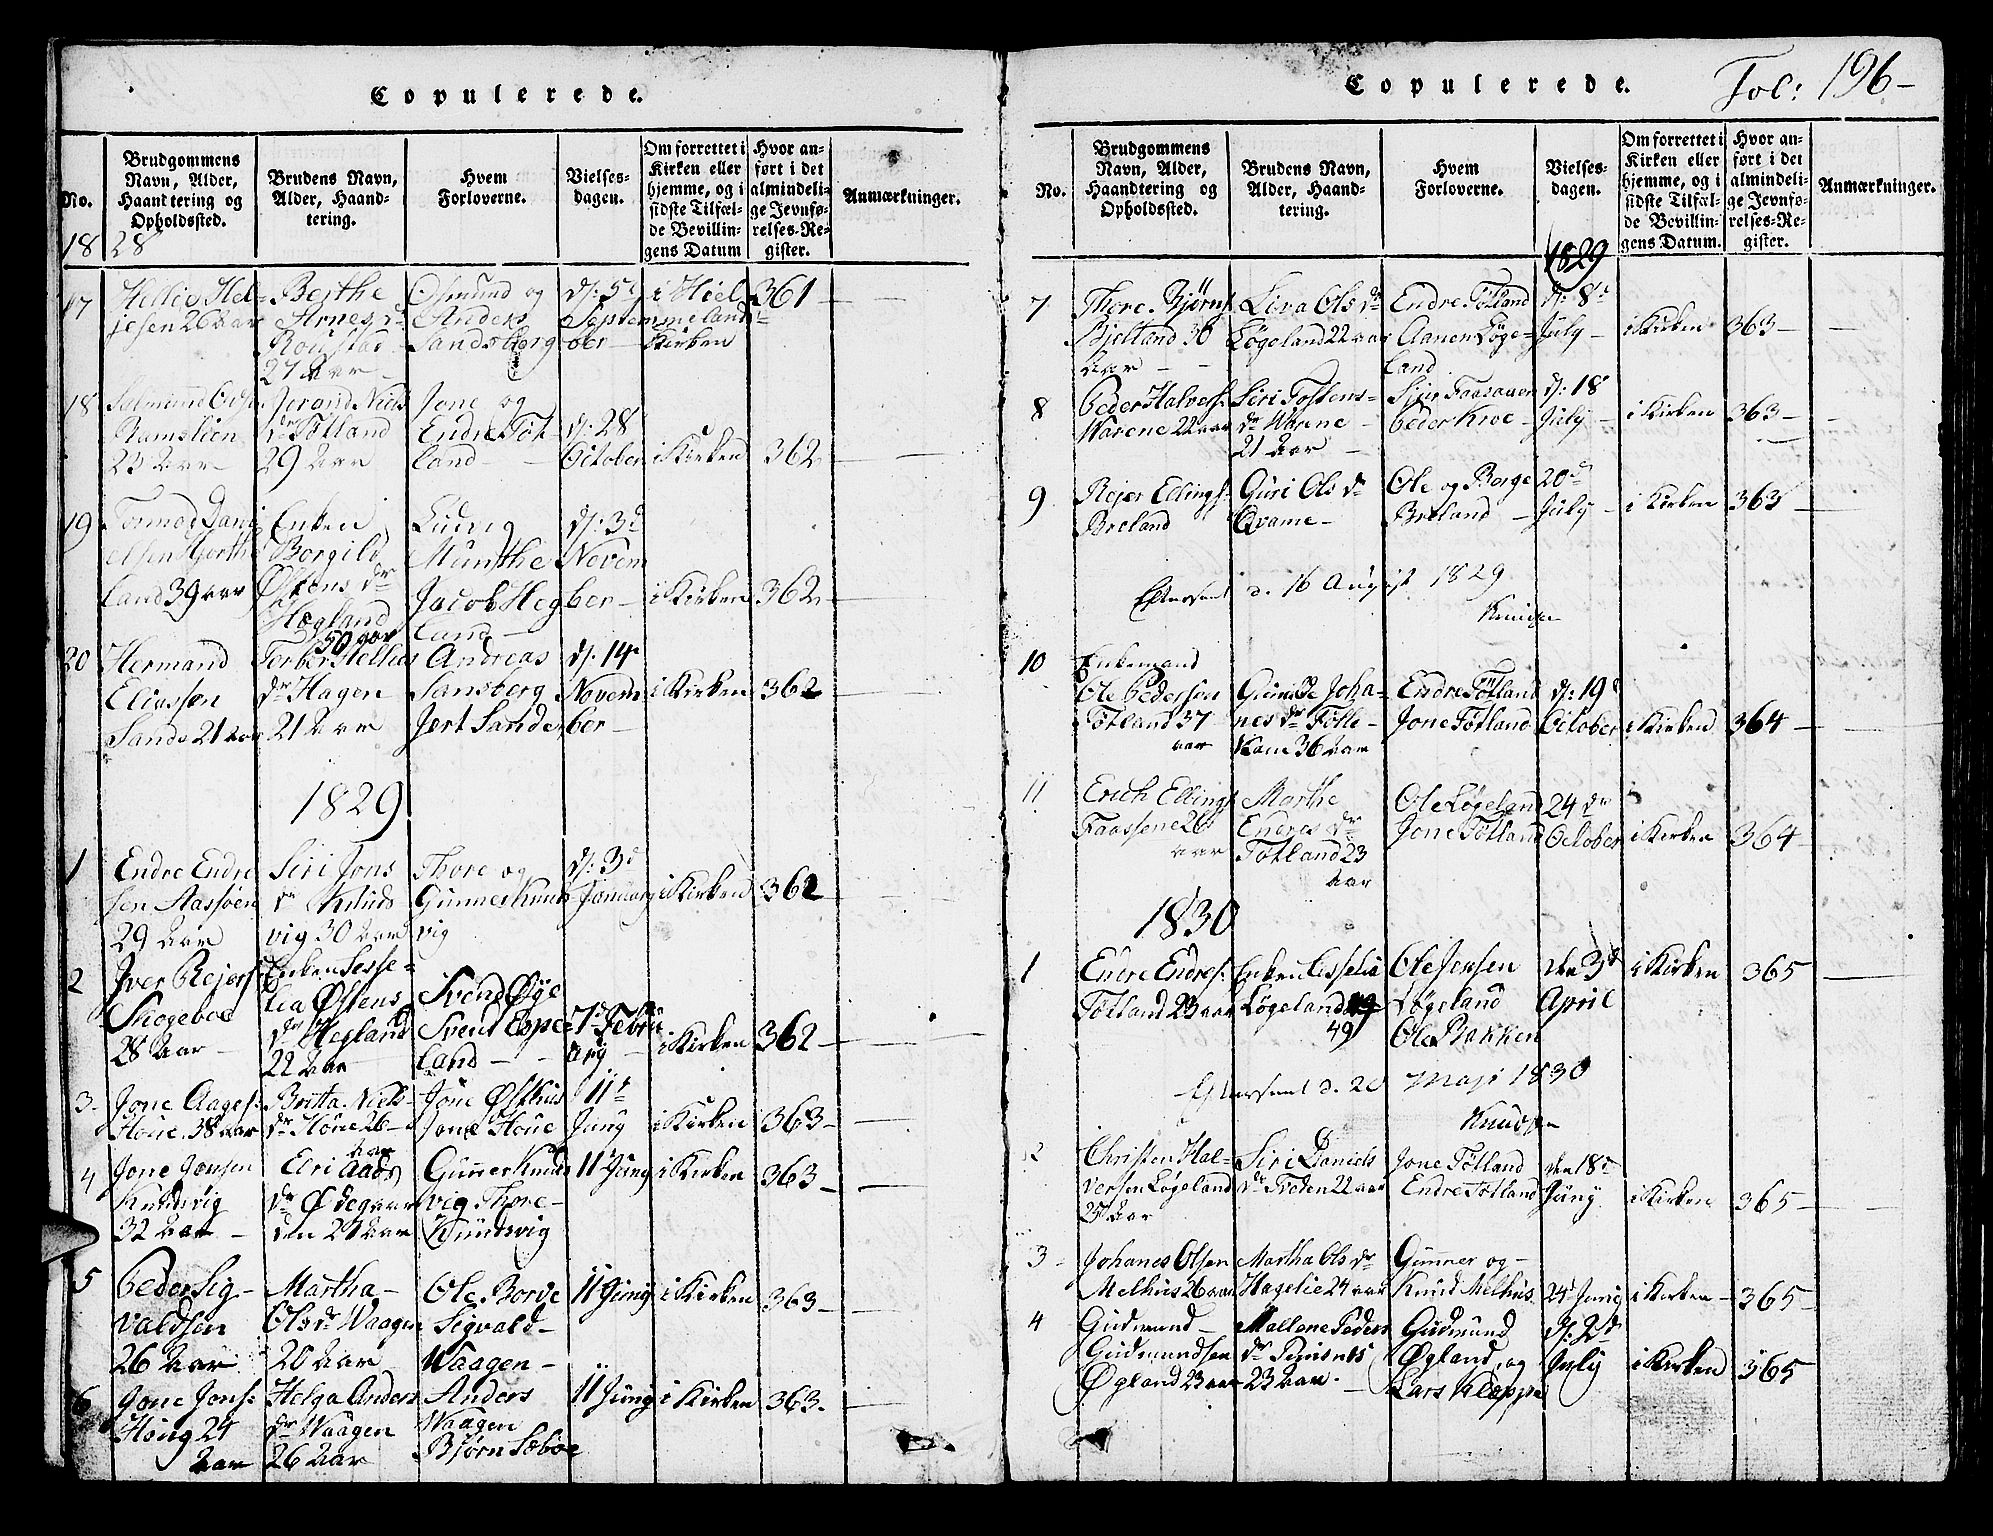 Copulerede.
No.
Brudgommens
Navn, Alder,
Haandtering og
Opholdssted.
Brudens Navn,
Alder, Haand-
tering.
Hvem
Forloverne.
Vielses-
dagen.
Om forrettet i
Kirken eller
hjemme, og i
sidste Tilfæl-
de Bevillin-
gens Datum
Hvor an-
ført i det
almindeli-
ge Jevnfø-
relses-Re-
gister.
Anmærkninger.
1828
17
Helliesen 26 aar
Berthe
Arnes dr
27 Aar
Osmund og
Anders
Sandsberg
d: 5t
September
i Hiel
meland
Kirken
361
18
Ramslien
23 Aar
Niels
dr Tøtland
29 Aar
Jone og
Endre Tøt
land
d: 28
October
i Kirken
362
19
Tormod Dani
elsen
land 39 aar
Enken
Borgild
Østens dr
Hægland
50 aar
Ludvig
Munthe
Jacob Heg
land
d: 3d
Novem
ber
i Kirken
362
20
Hermand
Eliassøn
Sande 21 aar
Torber Hellies
dr Hagen
21 Aar
Andreas
Sansberg
Jort Sande
d: 14
Novem
ber
i Kirken
362
1829
1
Endre Endre
sen Aassøen
29 Aar
Siri Jons
dr Knuds
vig 30 aar
Thore og
Gunner Knuds
vig
d: 3d
January
i Kirken
362
2
Iver Rejers:
Skogeboe
28 Aar
Enken Sesse-
lea Østens
dr Hegland
22 Aar
Svend Øye
Svend Espe
land
7d Febru
ary
i Kirken
362
3
Jone Aages:
Houe 38 aar
Britta Niels
dr Houe 26
aar
Jone Østhus
Jone Houe
11t
Juny
i Kirken
363
4
Jone Jonsen
Knudsvig
32 Aar
Elri Aads
dr Ødegaar
den 24 Aar
Gunner Knuds
vig Thore
Knudsvig
11 Juny
i Kirken
363
5
Peder Sig-
valdsen
26 Aar
Martha
Ols dr Waagen
20 Aar
Ole Borve
Sigvald
Waagen
11 Juny
i Kirken
363
6
Jone Jons:
24
Aar
Helga Anders
dr Waagen
26 Aar
Anders
Waagen
Bjørn Sæbøe
11 Juny
i Kirken
363
Copulerede.
Fol: 196
No.
Brudgommens
Navn, Alder,
Haandtering og
Opholdssted.
Brudens Navn,
Alder, Haand-
tering.
Hvem
Forloverne.
Vielses-
dagen.
Om forrettet i
Kirken eller
hjemme, og i
sidste Tilfæl-
de Bevillin-
gens Datum.
Hvor an-
ført i det
almindeli-
ge Jevnfø-
relses-Re-
gister.
Anmærkninger.
1829
7
Thore Bjørns
Bjelland 30
Aar
Liva Ols dr
Løgeland 22 aar
Endre Tøtland
Aanen Løge-
land
d: 8d
July
i Kirken
363
8
Peder Halvors:
Warene 22 aar
Siri Tostens-
dr Warene
21 Aar
Peder Kroe
d: 18
July
i Kirken
363
9
Rejer Ellings:
Breland
Guri Ols dr
Qvame
Ole og Borge
Breland
20d
July
i Kirken
363
Efterseet d. 16 August 1829
Knudsen
10
Enkemand
Ole Pederson
Tøtland 37
aar
Gunilde Joha-
nes dr
36 Aar
Endre Tøtland
Jone Tøtland
d: 19d
October
i Kirken
364
11
Erich Ellings
26
aar
Marthe
Endres dr
Tøtland 23
Aar
Ole Løgeland
Jone Tøtland
24 de
October
i Kirken
364
1830
1
Endre Endres:
Tøtland 23 aar
Enken Cisselia
Løgeland
49
Ole Jensen
Løgeland
Ole Bakken
den 3d
April
i Kirken
365
Efterseet d. 20 Maji 1830
Knudsen
2
Christen Hal-
versen Løgeland
Aar
Siri Daniels
dr Tveden 22 aar
Jone Tøtland
Endre Tøtland
den 18d
Juny
i Kirken
365
3
Johanes Olsen
Melhus 26 aar
Martha Ols dr
Hagelie 24 aar
Gunner og
Knud Melhus
24d Juny
i Kirken
365
4
Gudmund
Gudmundsen
Øgland 23 aar
Mallene Peders
dr
23 aar
Gudmund
Øgland, og
Lars Kleppe
d: 2d
July
i Kirken
365